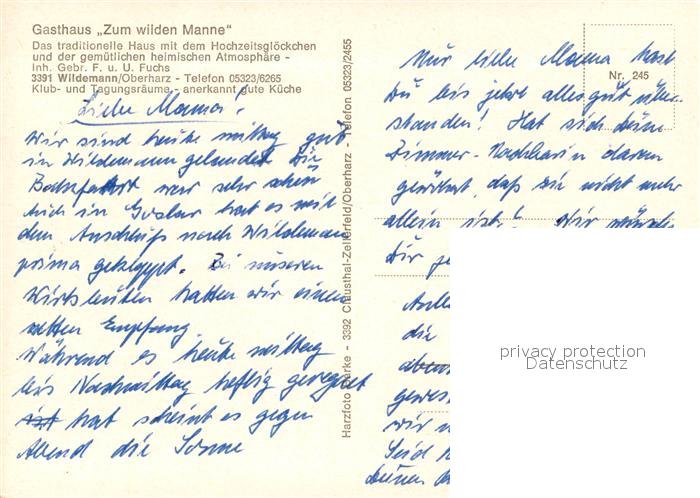 Gasthaus „Zum wilden Manne“
Das traditionelle Haus mit dem Hochzeitsglöckchen
und der gemütlichen heimischen Atmosphäre -
Inh. Gebr. F. u. U. Fuchs
3391 Wildemann/Oberharz - Telefon 05323/6265
Klub- und Tagungsräume - anerkannt gute Küche
Liebe Mama!
Wir sind heute mittag gut
in Wildemann gelandet. Die
Bahnfahrt war sehr schön
Auch in Goslar hat es mit
dem Anschluß nach Wildemann
prima geklappt. Bei unseren
Wirtsleuten hatten wir einen
netten Empfang.
Während es heute mittag
bis Nachmittag heftig geregnet
hat scheint es gegen
Abend die Sonne
Harzfoto Barke - 3392 Clausthal-Zellerfeld/Oberharz - Telefon 05323/2455
Nr. 245
Nur liebe Mama hast
Du bis jetzt alles gut über-
standen! Hat sich Deine
Zimmer-Nachbarin daran
gewöhnt, daß sie nicht mehr
allein ist! Wir
Dir
die
wir
Seid
privacy protection
Datenschutz